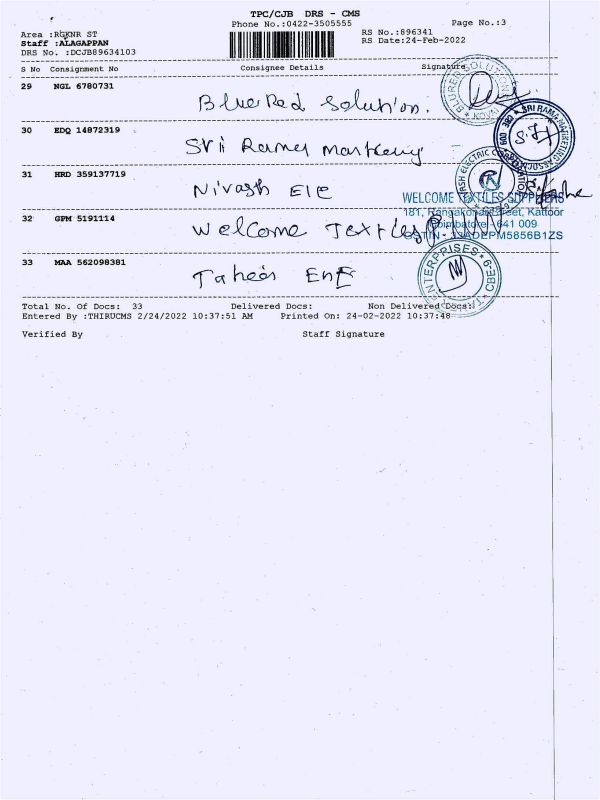 TPC/CJB DRS - CMS
Phone No.:0422-3505555
Page No.:3
Area :RGKNR ST
RS No.:896341
Staff :ALAGAPPAN
RS Date:24-Feb-2022
DRS No. :DCJB89634103
S No Consignment No Consignee Details Signature
29 NGL 6780731
BlueRed Solution.
30 EDQ 14872319
Sri Rama Marketing
31 HRD 359137719
Nivash Ele
WELCOME TEXTILES SUPPLIERS
181, Rangakonar Street, Kattoor
Coimbatore - 641 009
GSTIN - 33ADEPM5856B1ZS
32 GPM 5191114
Welcome Textles
33 MAA 562098381
ENTERPRISES
Total No. Of Docs: 33 Delivered Docs: Non Delivered Docs:
Entered By :THIRUCMS 2/24/2022 10:37:51 AM Printed On: 24-02-2022 10:37:48
Verified By Staff Signature